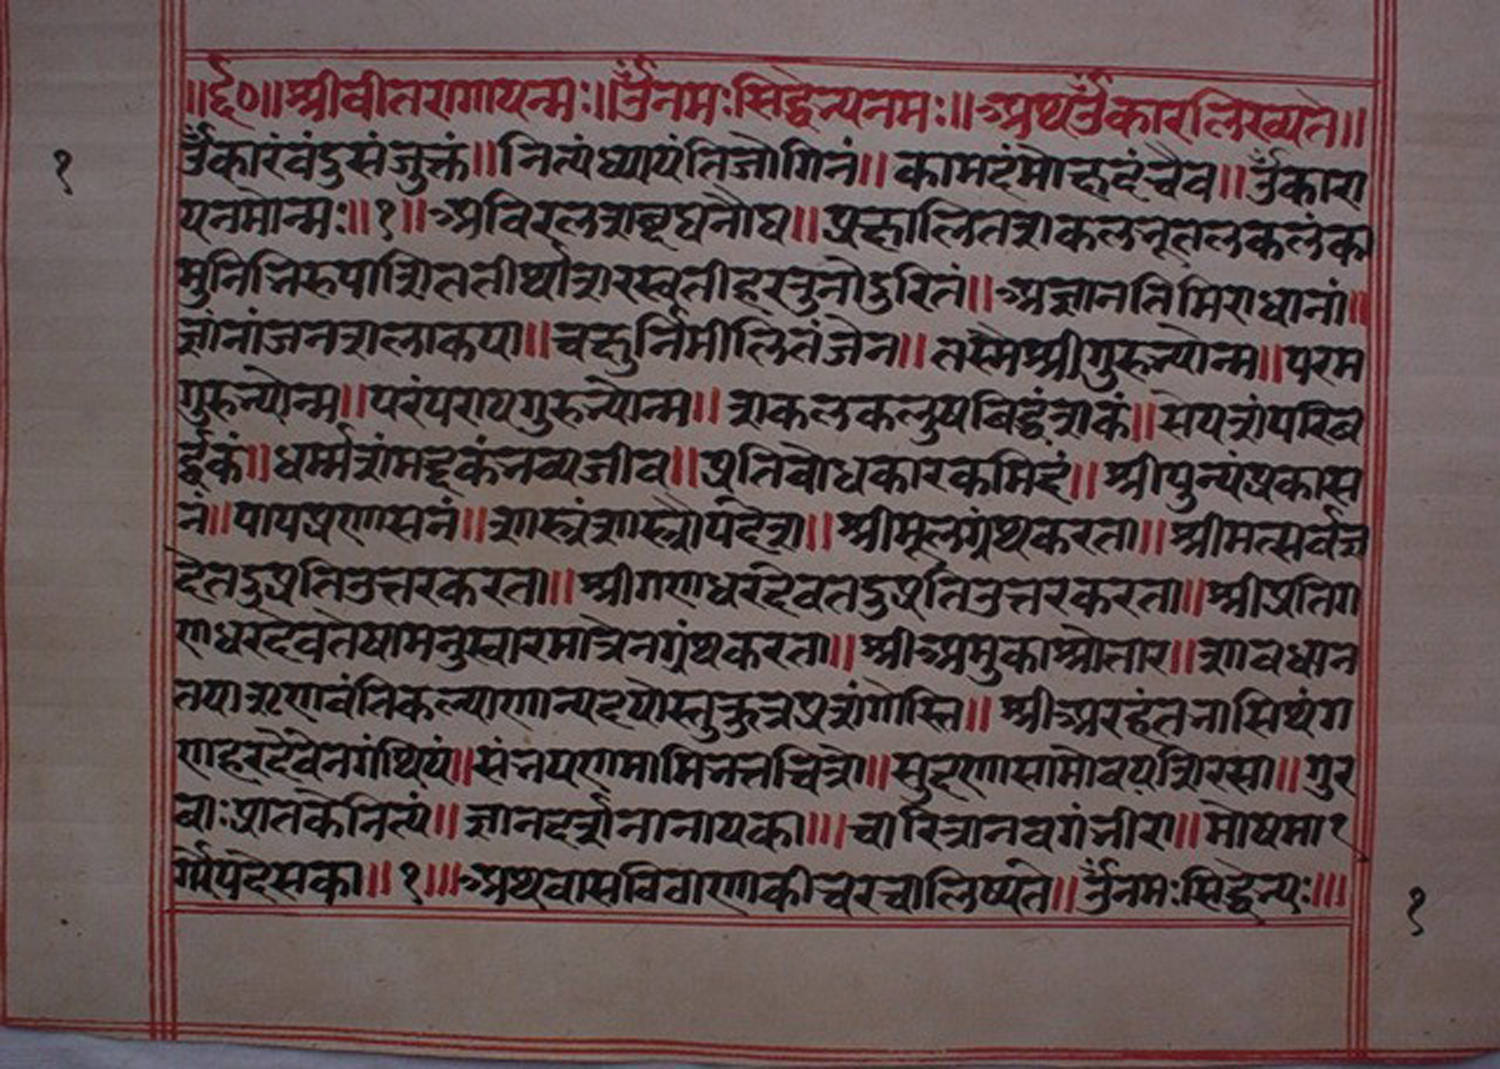 ॥६०॥श्रीवीतरागायन्मः॥ॐनमःसिद्धेन्यनमः॥अथॐकारलिख्यते॥
१
ॐकारंवंदुसंजुक्तं॥नित्यंध्यायंतिजोगिनं॥कामदंमोक्षदंचैव॥ॐकारा
यनमोन्मः॥१॥अविरलशब्दघनौघ॥प्रक्षालितशकलभूतलकलंका
मुनिभिरुपाशिततीर्थाशरस्वतीहरतुनोदुरितं॥अज्ञानतिमिराधानां॥
ज्ञांनांजनशलाकया॥चक्षुर्निमीलितंजेन॥तस्मैश्रीगुरुन्योन्म॥परम
गुरुन्योन्म॥परंपरायगुरुन्योन्म॥शकलकलुयबिद्धंशकं॥सेयशंपरिब
र्द्धकं॥धर्म्मशंमद्दकंभव्यजीव॥प्रतिबोधकारकमिदं॥श्रीपुन्यंप्रकास
नं॥पापप्रणासनं॥शास्त्रंशास्त्रोपदेश॥श्रीमूलग्रंथकरता॥श्रीमत्सर्वज्ञ
देतदुप्रतिउत्तरकरता॥श्रीगणधरदेवतदुप्रतिउत्तरकरता॥श्रीप्रतिग
णधरदेवतेषामनुस्वारमात्रेनग्रंथकरता॥श्रीअमुकाश्रोतार॥शावधान
तयाश्रणवंतिकल्याणान्यदयोस्तु॥श्रीअरहंतभासिथंग
णहरदेवेनगंथियं॥संभयणमामिभत्तचित्रो॥सुदणासामोवयशिरसा॥गुर
वाःप्रातकेनित्यं॥ज्ञानदर्शनानायका॥।चारित्रानवगंभीरा॥मोषमा१
र्गोपदेसका॥१॥।अथवासविवाणकीचरचालिष्यते॥ॐनमःसिद्धेन्यः॥।
१